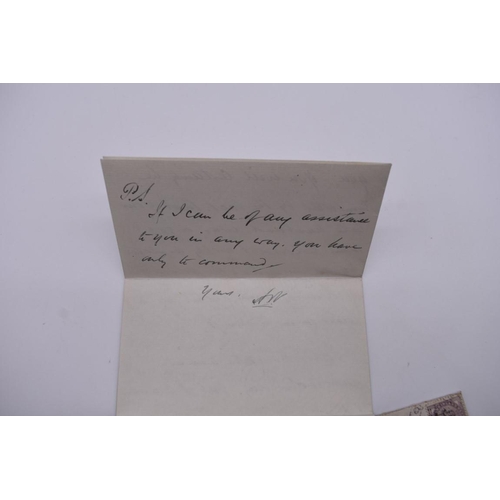 P.S.
If I can be of any assistance
to you in any way. you have
only to command
Yours.